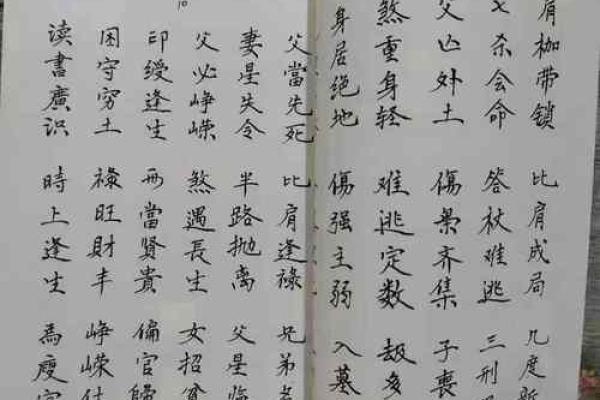 肩枷带锁 比肩成局 几度
七杀会命 答杖难逃 三刑
父亡外土 傷枭齐集 子丧
煞重身轻 难逃定数 劫多
身居绝地 傷强主弱 入墓
父當先死 比肩逢禄 兄弟
妻星失令 半路抛离 父星临
父必峥嵘 煞遇長生 女招
印綬逢生 母當賢貴 偏官歸
困守穷土 禄旺財丰 峥嵘仕
读書廣识 時上逢生 為
10